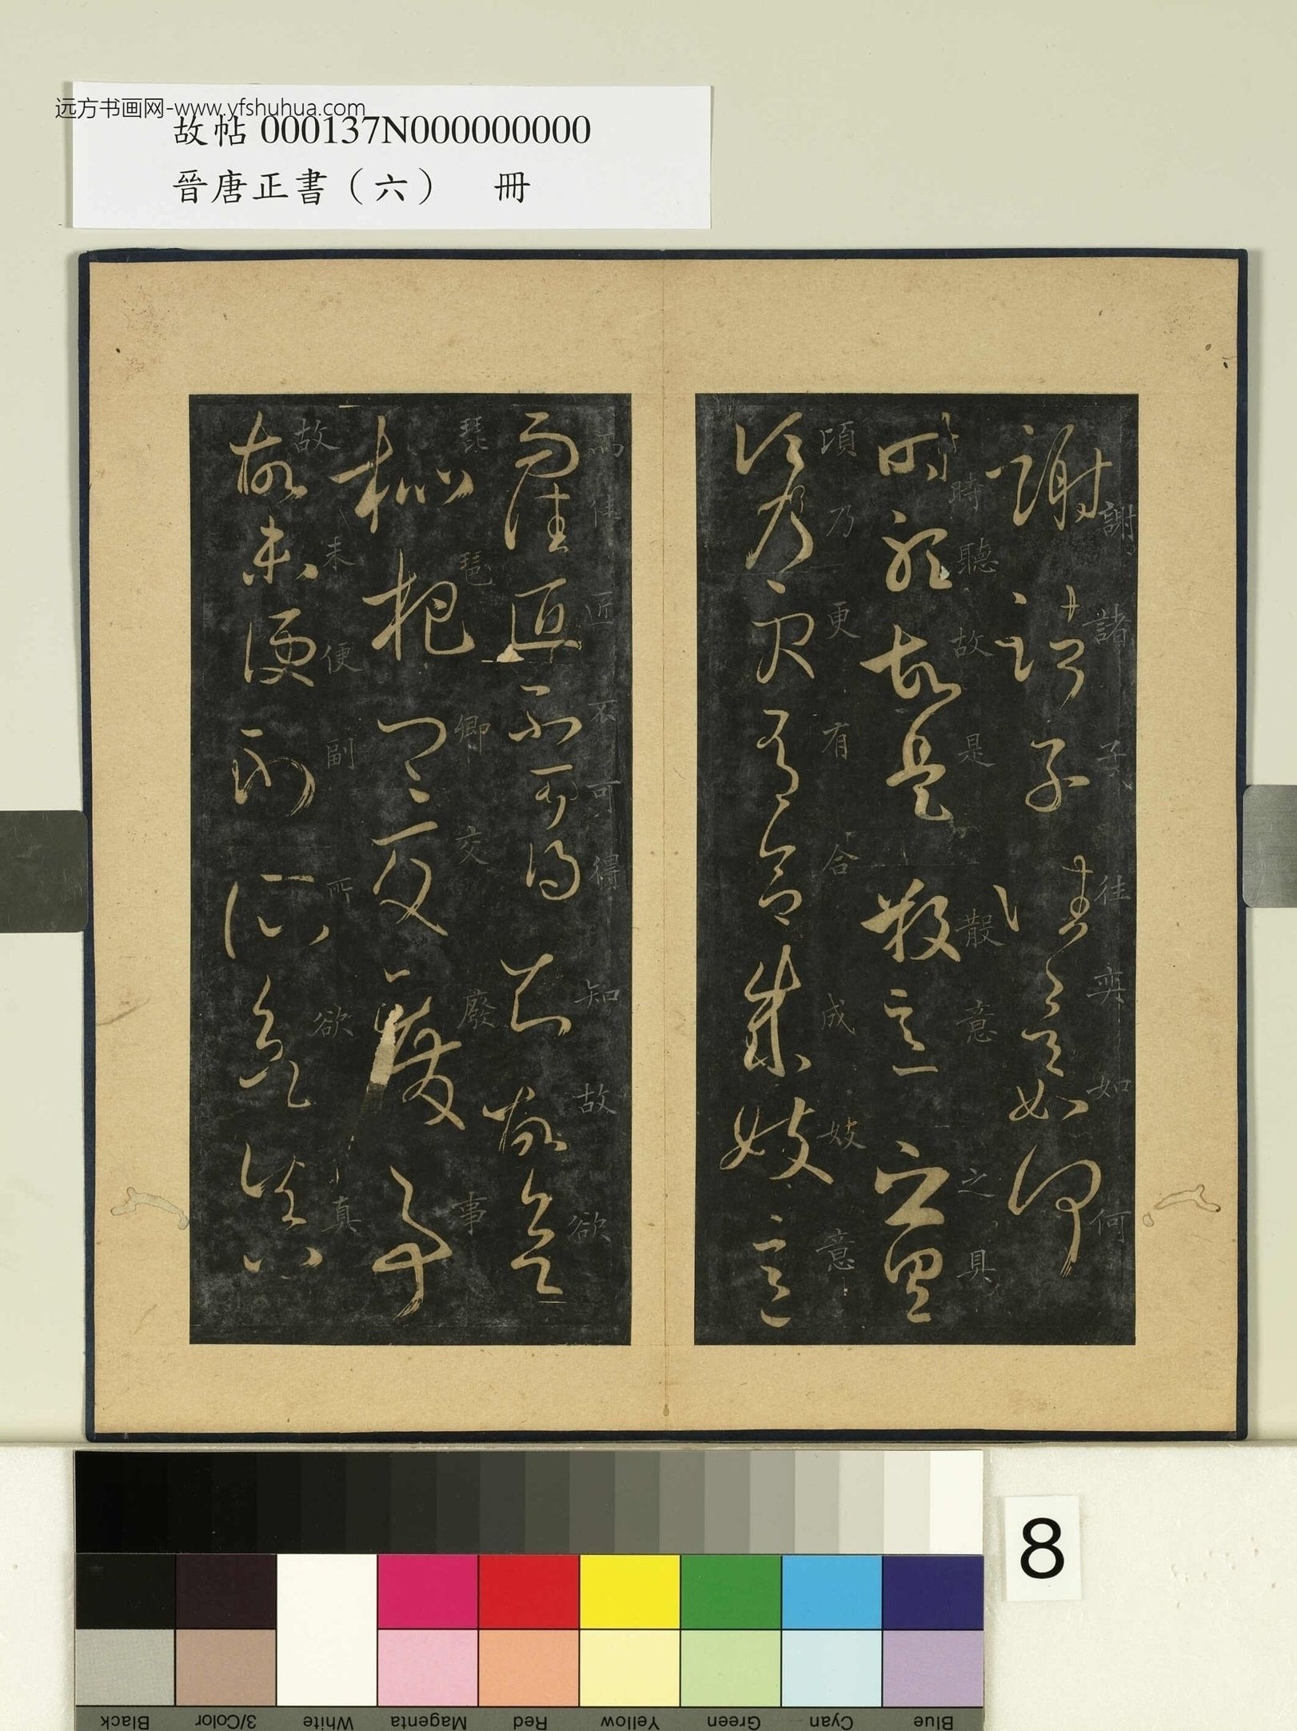 远方书画网-www.yfshuhua.com
故帖 000137N000000000
晉唐正書（六） 冊
謝諸子往弈如何
時聽故是散意之具
頃乃更有合成妓意
而佳匠不可得知故欲
琵琶卿交廢事
故未便副所欲真
8
Black
3/Color
White
Magenta
Red
Yellow
Green
Cyan
Blue